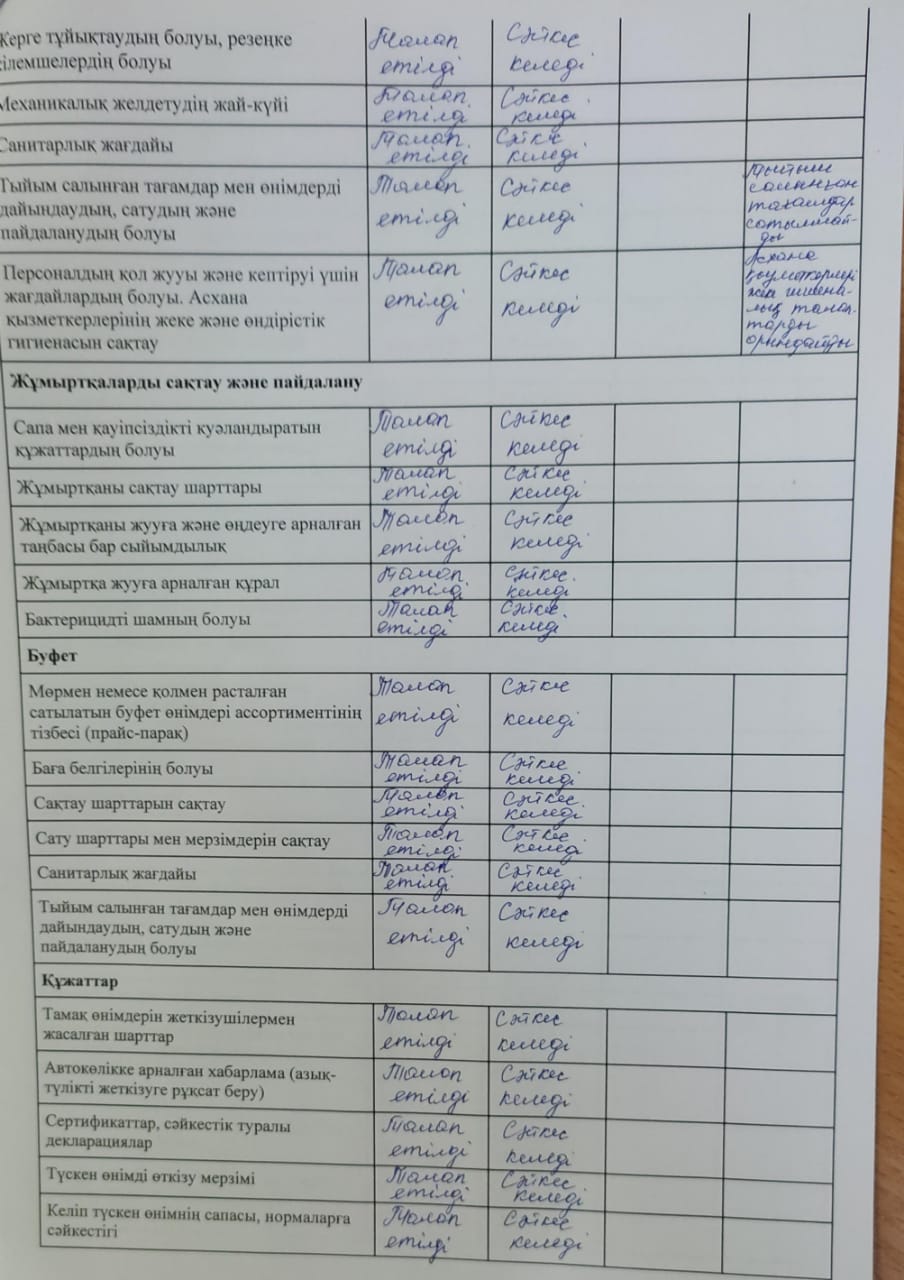 Жерге тұйықтаудың болуы, резеңке Талап Сәйкес
кілемшелердің болуы етілді келеді
Механикалық желдетудің жай-күйі Талап Сәйкес
етілді келеді
Санитарлық жағдайы Талап Сәйкес
етілді келеді
Тыйым салынған тағамдар мен өнімдерді Талап Сәйкес Тыйым
дайындаудың, сатудың және етілді келеді салынған
пайдаланудың болуы тағамдар
сатылмай-
ды
Персоналдың қол жууы және кептіруі үшін Талап Сәйкес Асхана
жағдайлардың болуы. Асхана етілді келеді қызметкерлері
қызметкерлерінің жеке және өндірістік жеке гигиена-
гигиенасын сақтау лық талап-
тарды
орындайды
Жұмыртқаларды сақтау және пайдалану
Сапа мен қауіпсіздікті куәландыратын Талап Сәйкес
құжаттардың болуы етілді келеді
Жұмыртқаны сақтау шарттары Талап Сәйкес
етілді келеді
Жұмыртқаны жууға және өңдеуге арналған Талап Сәйкес
таңбасы бар сыйымдылық етілді келеді
Жұмыртқа жууға арналған құрал Талап Сәйкес
етілді келеді
Бактерицидті шамның болуы Талап Сәйкес
етілді келеді
Буфет
Мөрмен немесе қолмен расталған Талап Сәйкес
сатылатын буфет өнімдері ассортиментінің етілді келеді
тізбесі (прайс-парақ)
Баға белгілерінің болуы Талап Сәйкес
етілді келеді
Сақтау шарттарын сақтау Талап Сәйкес
етілді келеді
Сату шарттары мен мерзімдерін сақтау Талап Сәйкес
етілді келеді
Санитарлық жағдайы Талап Сәйкес
етілді келеді
Тыйым салынған тағамдар мен өнімдерді Талап Сәйкес
дайындаудың, сатудың және етілді келеді
пайдаланудың болуы
Құжаттар
Тамақ өнімдерін жеткізушілермен Талап Сәйкес
жасалған шарттар етілді келеді
Автокөлікке арналған хабарлама (азық- Талап Сәйкес
түлікті жеткізуге рұқсат беру) етілді келеді
Сертификаттар, сәйкестік туралы Талап Сәйкес
декларациялар етілді келеді
Түскен өнімді өткізу мерзімі Талап Сәйкес
етілді келеді
Келіп түскен өнімнің сапасы, нормаларға Талап Сәйкес
сәйкестігі етілді келеді